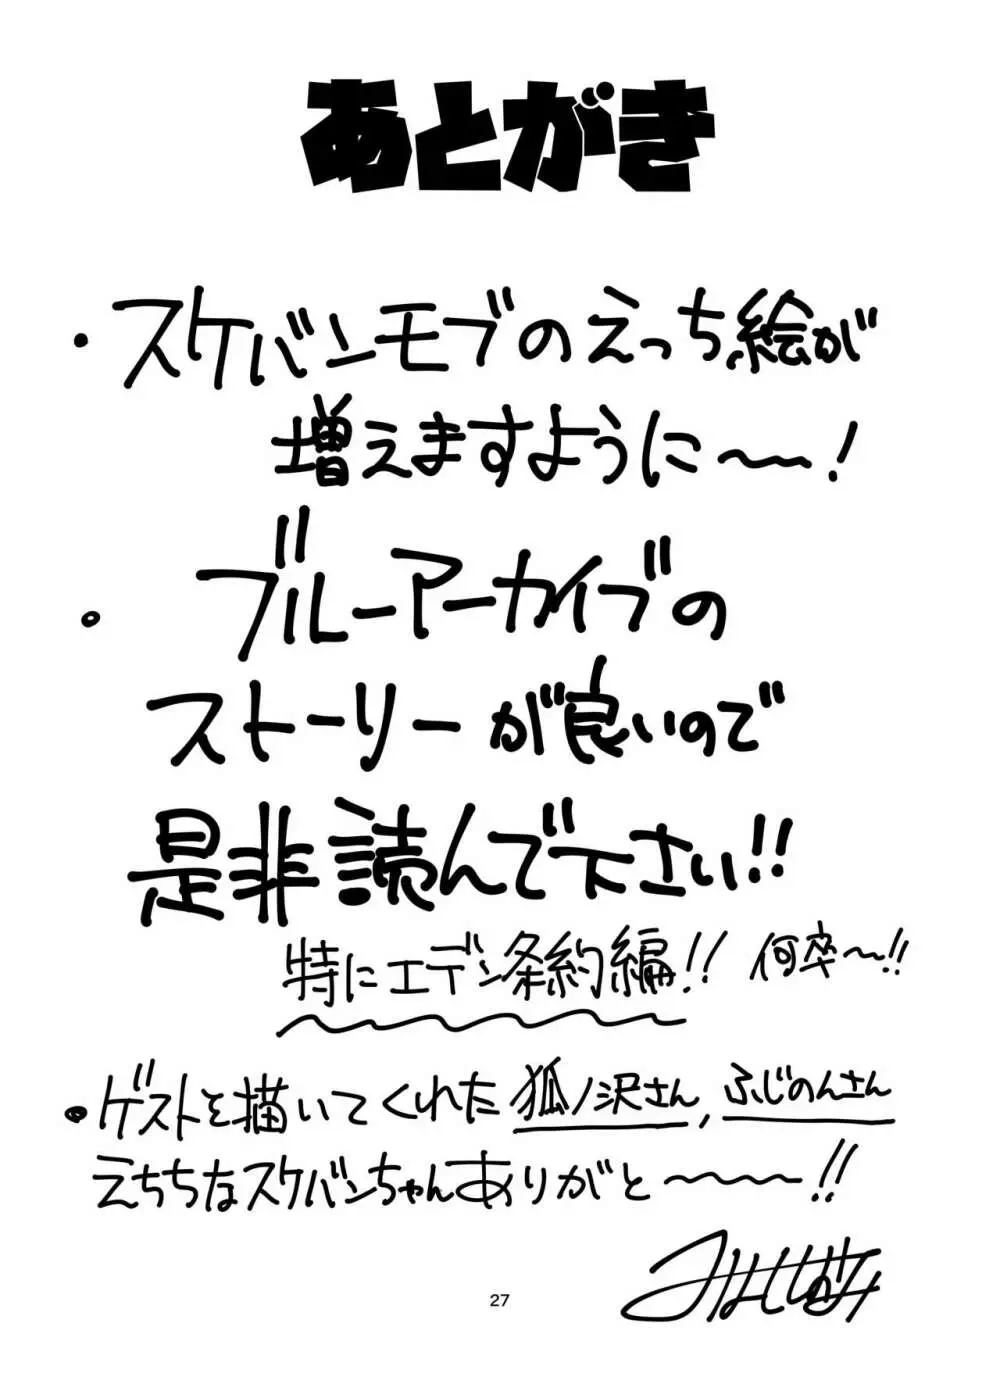 あとがき
・スケバンモブのえっち絵が
増えますように〜〜！
・ブルーアーカイブの
ストーリーが良いので
是非読んで下さい!!
特にエデン条約編!! 何卒〜!!
・ゲストを描いてくれた狐ノ沢さん,ふじのんさん
えちちなスケバンちゃんありがと〜〜〜!!
27